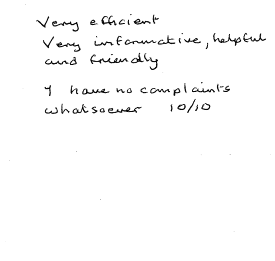 Very efficient
Very informative, helpful
and friendly
I have no complaints
whatsoever 10/10